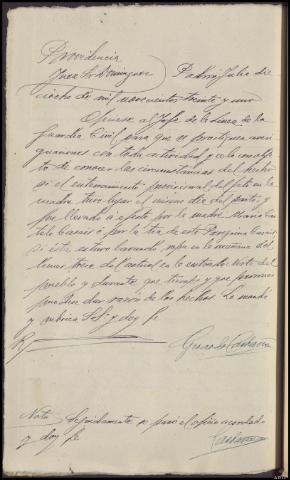 Providencia
Juez Sr Dominguez. Padrón Julio diez
iocho de mil novecientos treinta y uno
Oficiese al Jefe de la Linea de la
Guardia Civil para que se practiquen averi
guaciones con toda actividad y celo con obje
to de conocer las circunstancias del hecho
si el enterramiento provisional del feto en la
cuadra tuvo lugar el mismo dia del parto, y
fue llevado a efecto por la madre
o por la tia de esta Peregrina
si esta estuvo lavando ropa en la mañana del
lunes, trece del actual en la
pueblo y durante que tiempo y que personas
puedan dar razon de los hechos. Lo mandó
y rubrica S.Sª y doy fe
Nota Seguidamente se pasó el oficio acordado
y doy fe